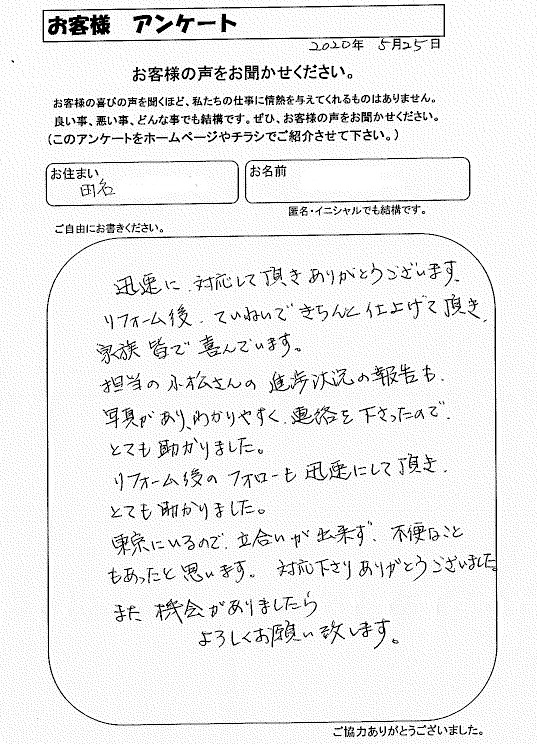 お客様 アンケート
2020年 5月25日
お客様の声をお聞かせください。
お客様の喜びの声を聞くほど、私たちの仕事に情熱を与えてくれるものはありません。
良い事、悪い事、どんな事でも結構です。ぜひ、お客様の声をお聞かせください。
(このアンケートをホームページやチラシでご紹介させて下さい。)
お住まい
田名
お名前
匿名・イニシャルでも結構です。
ご自由にお書きください。
迅速に、対応して頂きありがとうございます。
リフォーム後、ていねいできちんと仕上げて頂き、
家族皆で喜んでいます。
担当の小松さんの進歩状況の報告も、
写真があり、わかりやすく、連絡を下さったので、
とても助かりました。
リフォーム後のフォローも迅速にして頂き、
とても助かりました。
東京にいるので、立合いが出来ず、不便なこと
もあったと思います。対応下さりありがとうございました。
また機会がありましたら
よろしくお願い致します。
ご協力ありがとうございました。